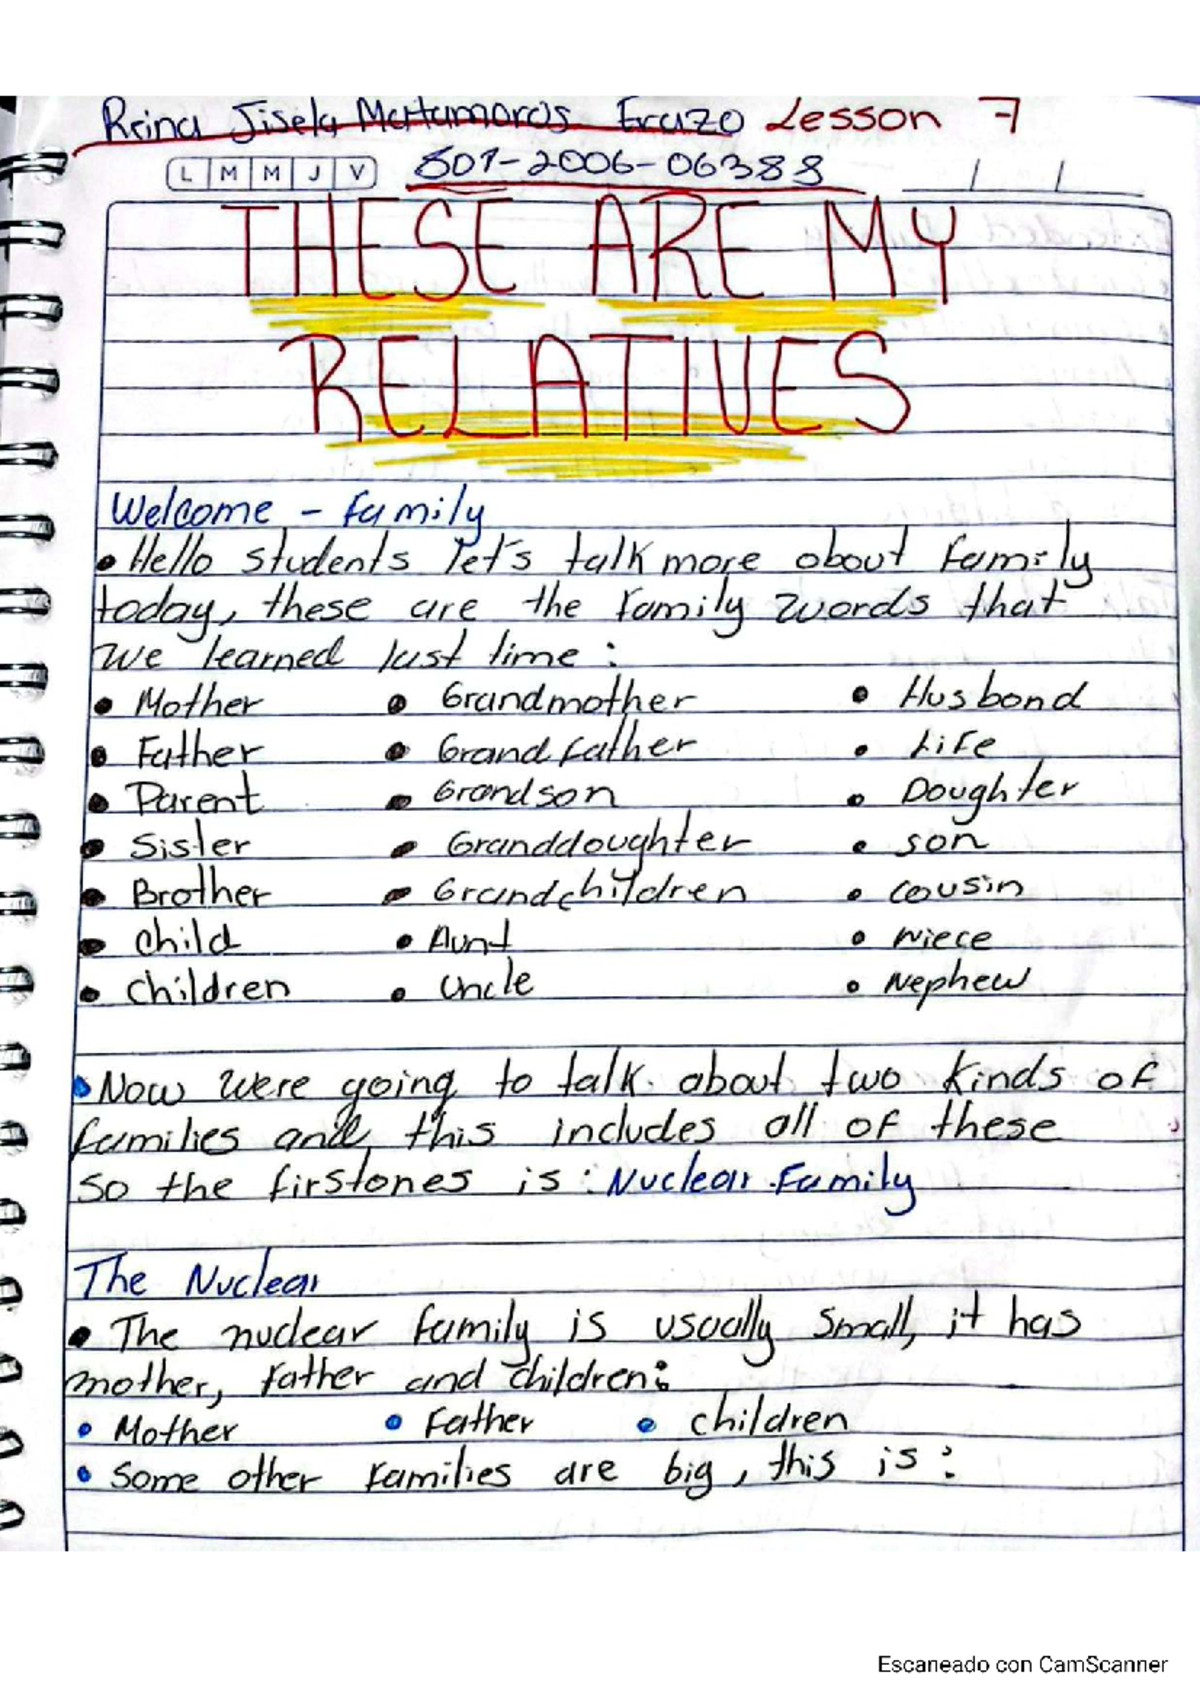 Reina Jisela Matamoros Erazo Lesson 7
L M M J V 801-2006-06388 / /
THESE ARE MY
RELATIVES
Welcome - family
• Hello students let's talk more about family
today, these are the family words that
we learned last time :
• Mother • Grandmother • Husbond
• Father • Grandfather • Life
• Parent • Grandson • Doughter
• Sister • Granddoughter • son
• Brother • Grandchildren • cousin
• child • Aunt • Niece
• children • Uncle • Nephew
• Now were going to talk about two kinds of
families and, this includes all of these
so the firstones is : Nuclear Family
The Nuclear
• The nuclear family is usually small, it has
mother, father and children:
• Mother • Father • children
• some other families are big, this is :
Escaneado con CamScanner